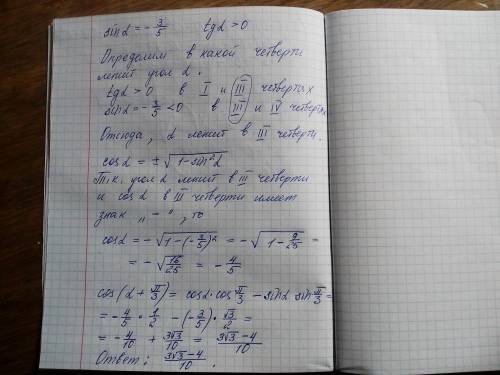 sinα = -3/5    tgα > 0
Определим в какой четверти
лежит угол α.
tgα > 0 в I и III четвертях
sinα = -3/5 < 0 в III и IV четвертях
Отсюда, α лежит в III четверти.
cosα = ± √(1-sin²α)
Т.к. угол α лежит в III четверти
и cosα в III четверти имеет
знак „ - ", то
cosα = -√(1-(-3/5)²) = -√(1-9/25) =
= -√(16/25) = -4/5
cos(α + π/3) = cosα·cos π/3 - sinα sin π/3 =
= -4/5 · 1/2 - (-3/5) · √3/2 =
= -4/10 + 3√3/10 = (3√3-4)/10
Ответ: (3√3-4)/10.